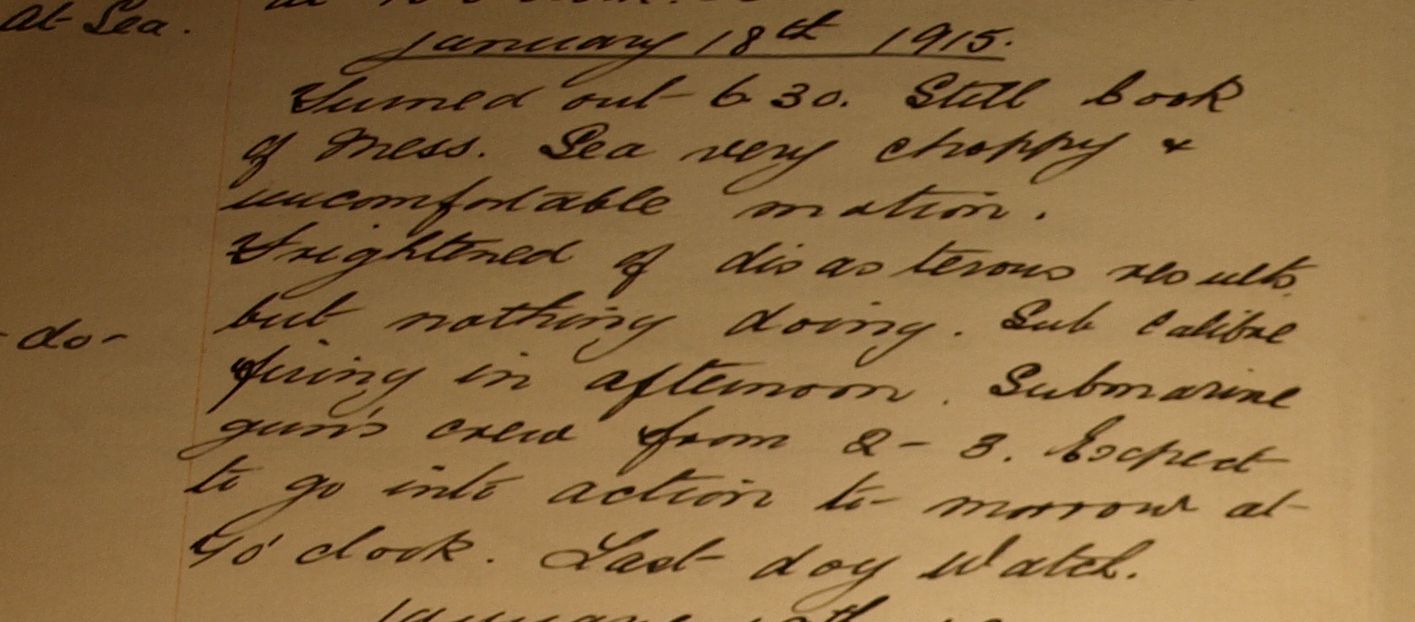 At Sea.
January 18th 1915.
Turned out 6 30. Still book
of Mess. Sea very choppy &
uncomfortable motion.
Frightened of disasterous results
-do-
but nothing doing. Sub Calibre
firing in afternoon. Submarine
guns crew from 2-3. Expect
to go into action to-morrow at
o'clock. Last dog Watch.